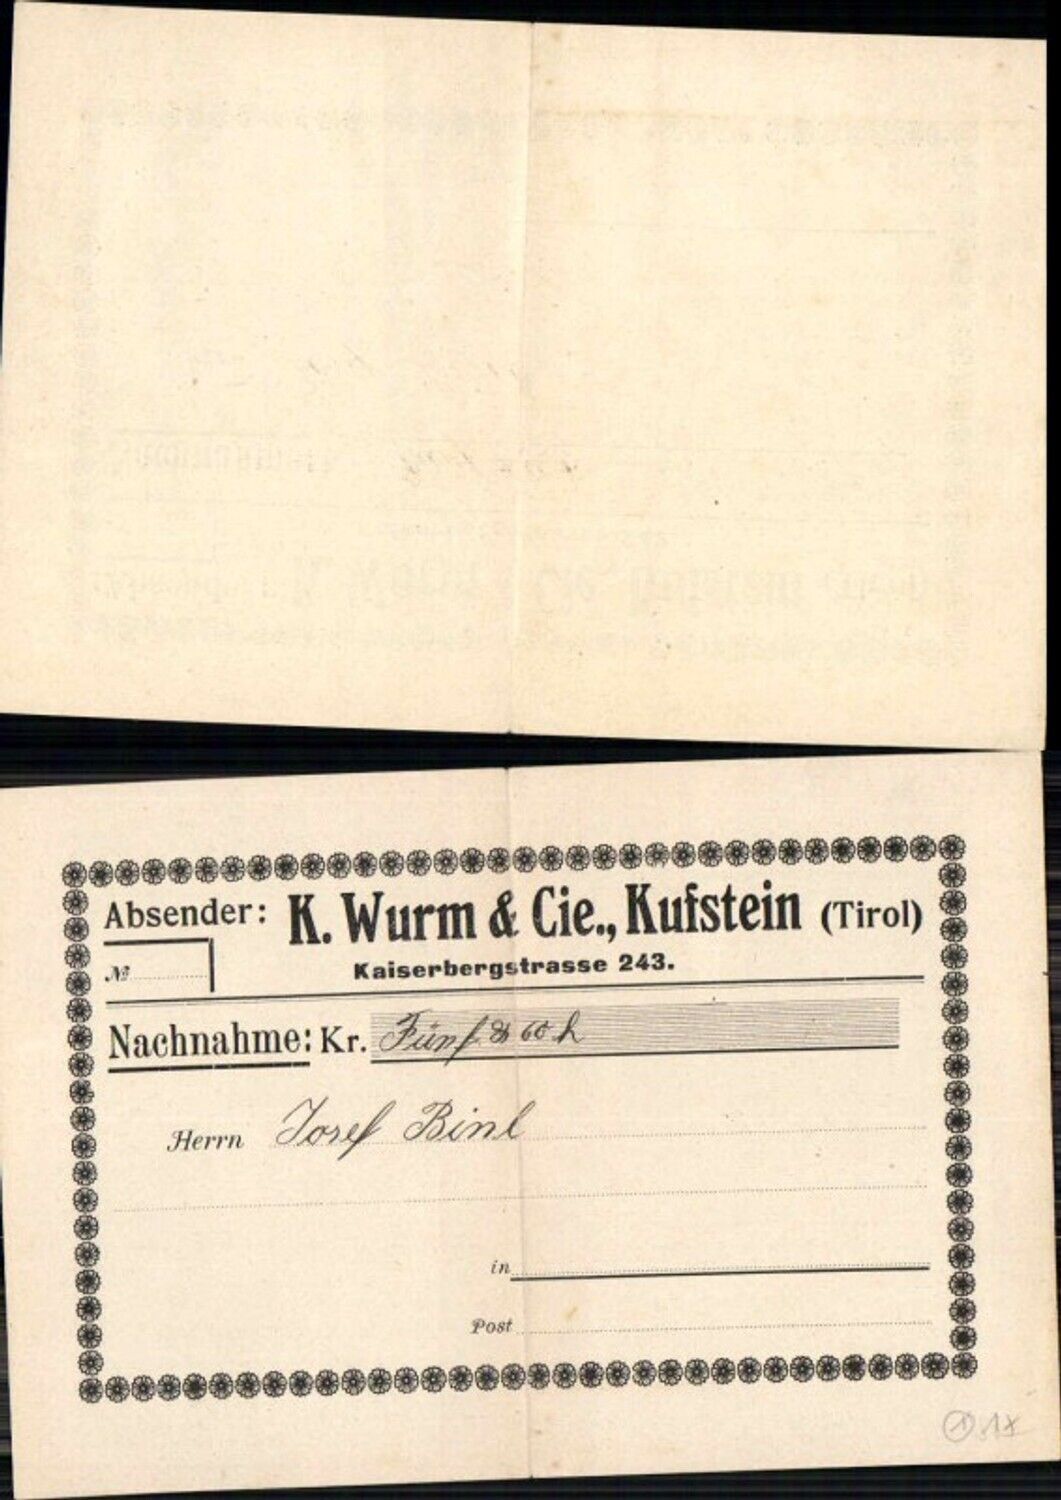 Absender: K. Wurm & Cie., Kufstein (Tirol)
№
Kaiserbergstrasse 243.
Nachnahme: Kr. Fünf & 60 h
Herrn Josef Binl
in
Post